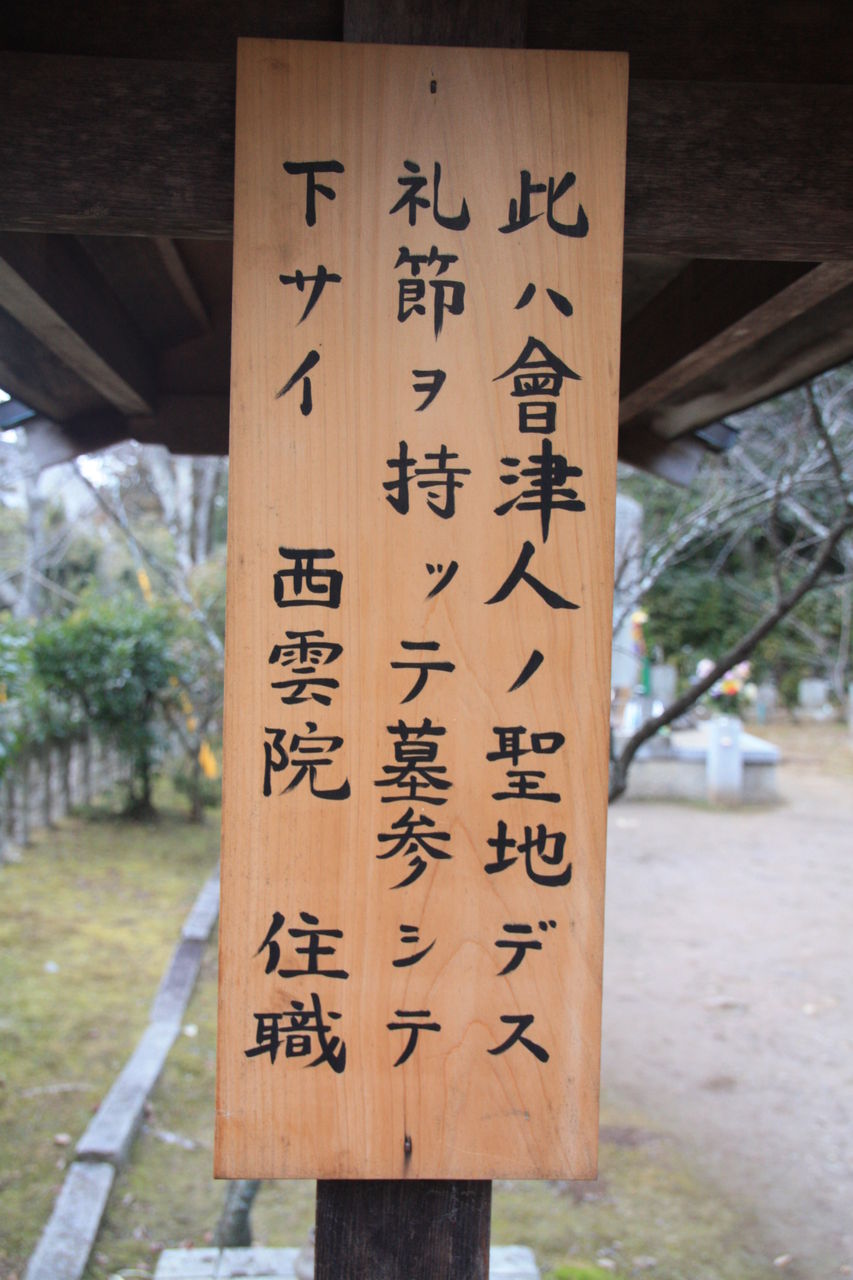 此ハ會津人ノ聖地デス
礼節ヲ持ッテ墓参シテ
下サイ 西雲院 住職